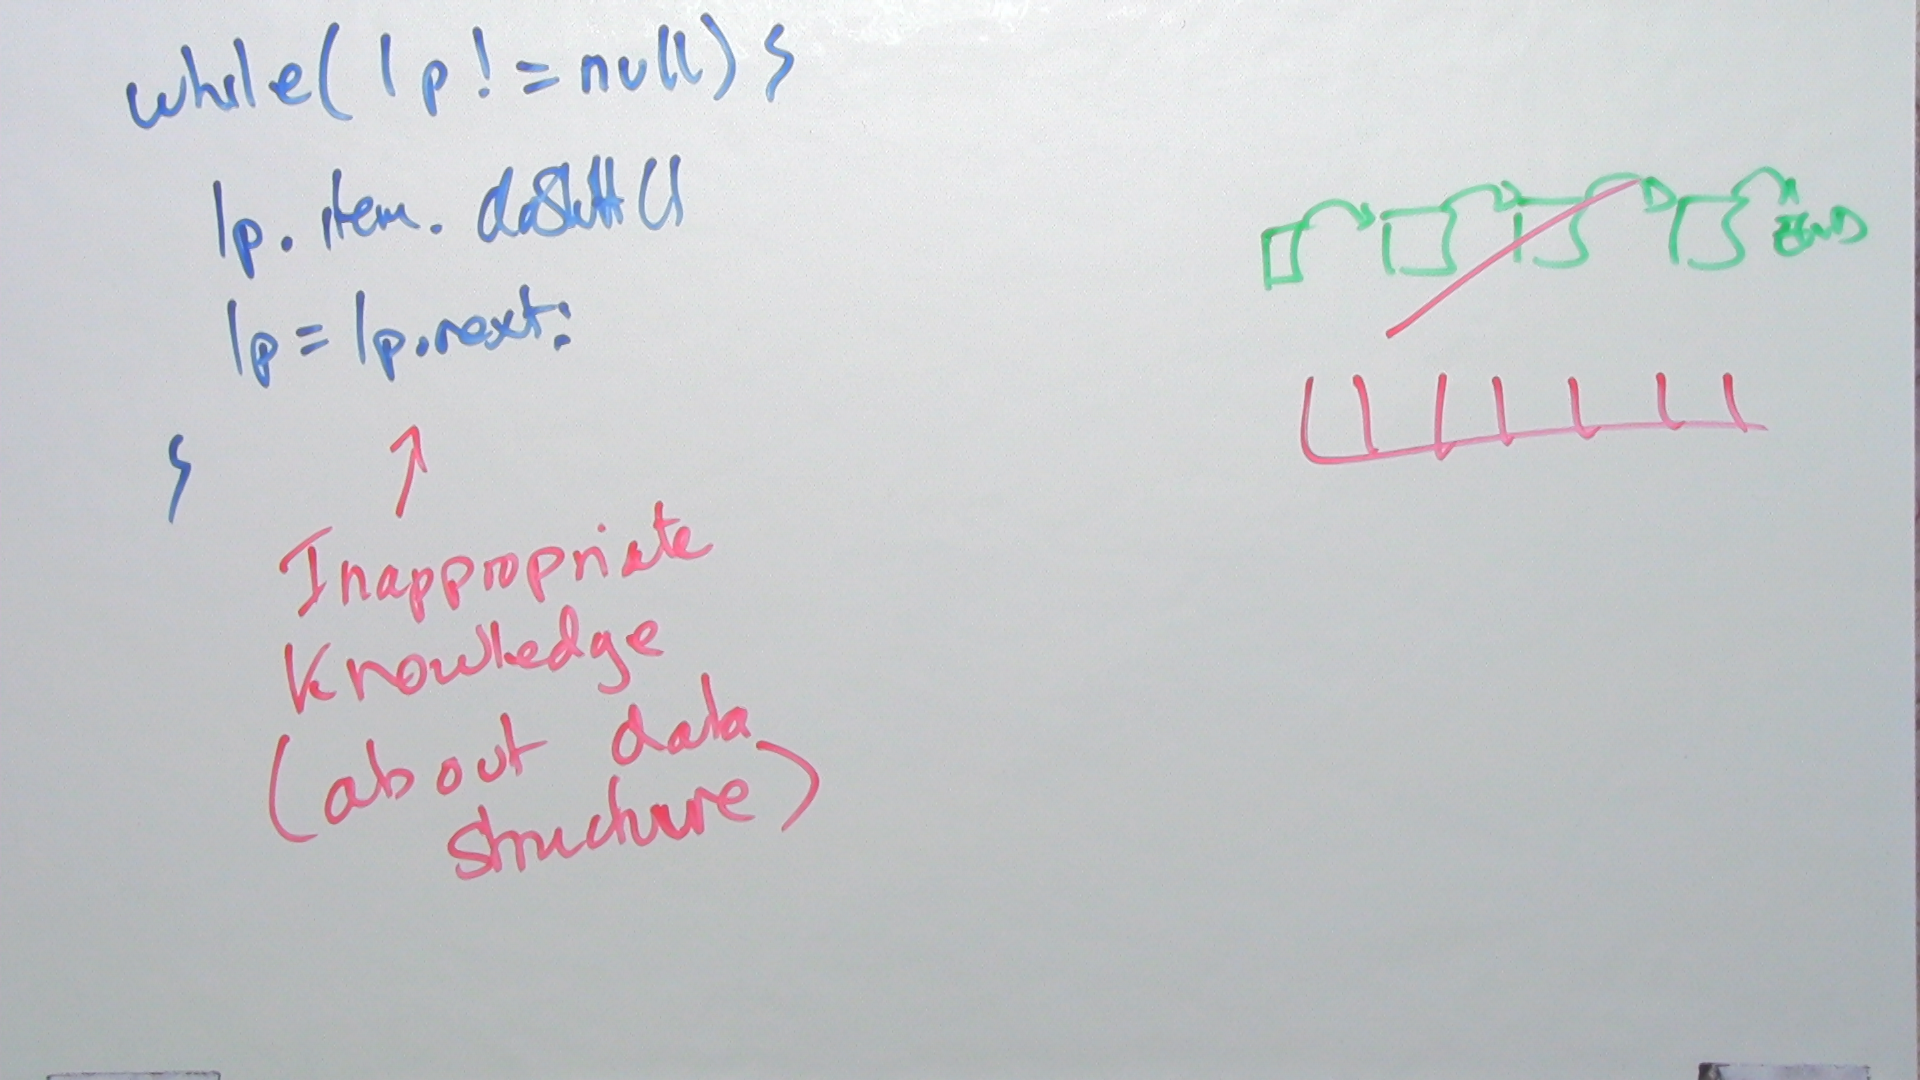 while( lp != null) {
lp. item. doStuff()
lp = lp.next;
}
Inappropriate
Knowledge
(about data
structure)
END